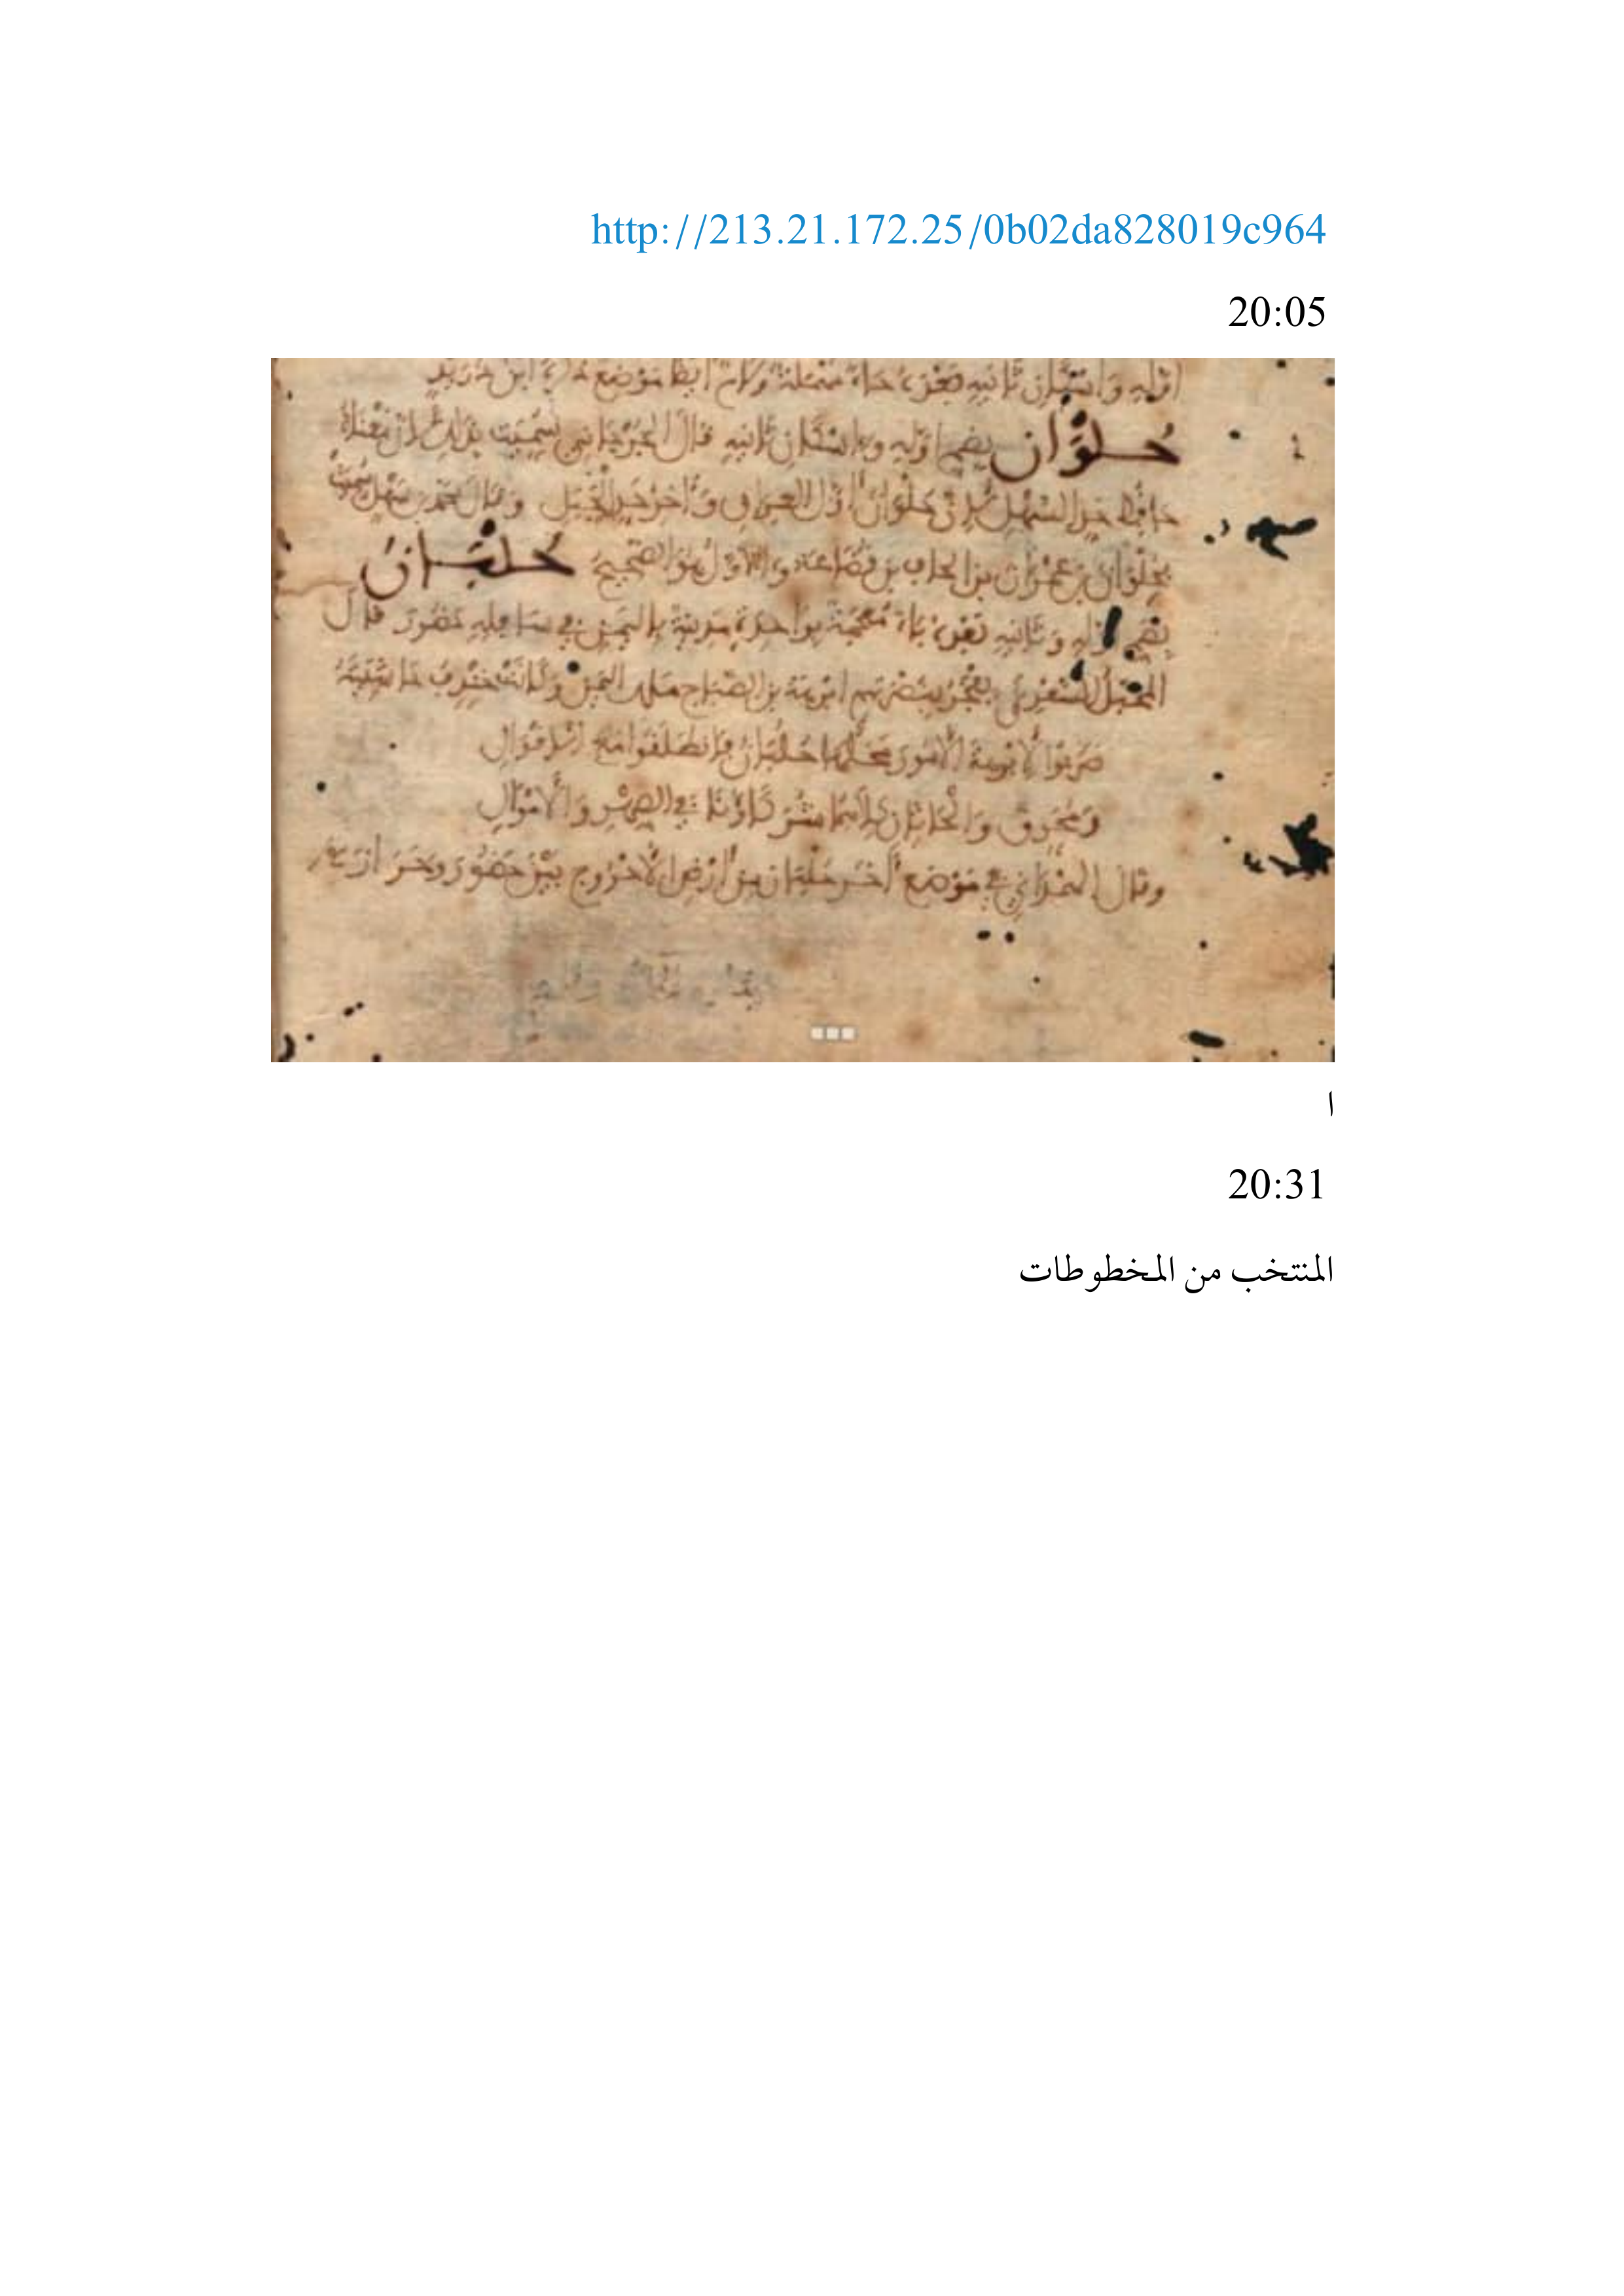 http://213.21.172.25/0b02da828019c964
20:05
اوله واسكان ثانيه بعده حاء مهملة ايضا موضع ابن دريد
حلوان بضم اوله واسكان ثانيه قال الجرجاني سميت بذلك لان معناه
حافظ حد السهل لان حلوان اول العراق واخر حد الجبل وقال محمد بن سهل سميت
بحلوان بن عمران بن الحاف بن قضاعة والاول هو الصحيح حلبان
بضم اوله وثانيه بعده باء معجمة بواحدة مدينة باليمن في سافله حضور قال
المخبل السعدي يفخر بنصرتهم ابرهة بن الصباح ملك اليمن وكانت خندف حاشيته
ضربوا لابرهة الامور محلها حلبان فانطلقوا مع الاقوال
ومحرق والحارثان كلاهما شركاؤنا في الصهر والاموال
وقال الهمداني في موضع اخر حلبان من ارض الاخروج بين حضور وحراز
ا
20:31
المنتخب من المخطوطات